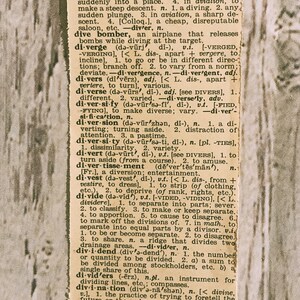 suddenly into a place. 4. in aviation, to
make a steep descent. n. 1. a diving. 2. any
sudden plunge. 3. in aviation, a sharp de-
scent. 4. [Colloq.], a cheap, disreputable
saloon, etc. —div'er, n.
dive bomber, an airplane that releases
bombs while diving at the target.
di·verge (də-vûrj', dī-), v.i. [-VERGED,
-VERGING], [< L. dis-, apart + vergere, to
incline], 1. to go or be in different direc-
tions; branch off. 2. to vary from a norm;
deviate. —di·ver'gence, n. —di·ver'gent, adj.
di·vers (dī'vẽrz), adj. [< L. dis-, apart +
vertere, to turn], various.
di·verse (də-vûrs', dī-), adj. [see DIVERS], 1.
different. 2. varied. —di·verse'ly, adv.
di·ver·si·fy (də-vûr'sə-fī', dī-), v.t. [-FIED,
-FYING], to make diverse; vary. —di·ver'-
si·fi·ca'tion, n.
di·ver·sion (də-vûr'zhən, dī-), n. 1. a di-
verting; turning aside. 2. distraction of
attention. 3. a pastime.
di·ver·si·ty (də-vûr'sə-ti, dī-), n. [pl. -TIES],
1. dissimilarity. 2. variety.
di·vert (də-vûrt', dī-), v.t. [see DIVERS], 1. to
turn aside (from a course). 2. to amuse.
di·ver·tisse·ment (dē'ver'tēs'män'), n.
[Fr.], a diversion; entertainment.
di·vest (də-vest', dī-), v.t. [< L. dis-, from +
vestire, to dress], 1. to strip (of clothing,
etc.). 2. to deprive (of rank, rights, etc.).
di·vide (də-vīd'), v.t. [-VIDED, -VIDING], [< L.
dividere], 1. to separate into parts; sever.
2. to classify. 3. to make or keep separate.
4. to apportion. 5. to cause to disagree. 6.
to mark off the divisions of. 7. in math., to
separate into equal parts by a divisor. v.i.
1. to be or become separate. 2. to disagree.
3. to share. n. a ridge that divides two
drainage areas. —di·vid'er, n.
div·i·dend (div'ə-dend'), n. 1. the number
or quantity to be divided. 2. a) a sum to
be divided among stockholders, etc. b) a
single share of this.
di·vid·ers (də-vīd'ẽrz), n.pl. an instrument for
dividing lines, etc.; compasses.
div·i·na·tion (div'ə-nā'shən), n. [< L. divinus,
1. the practice of trying to foretell